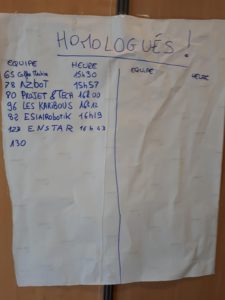 HOMOLOGUÉS !
EQUIPE HEURE
EQUIPE HEURE
65 Coffee Machine 15h30
78 AZBOT 15h57
80 PROJET & TECH 16h00
96 LES KARIBOUS 16h12
82 ESIALROBOTIK 16h19
123 ENSTAR 16h43
130